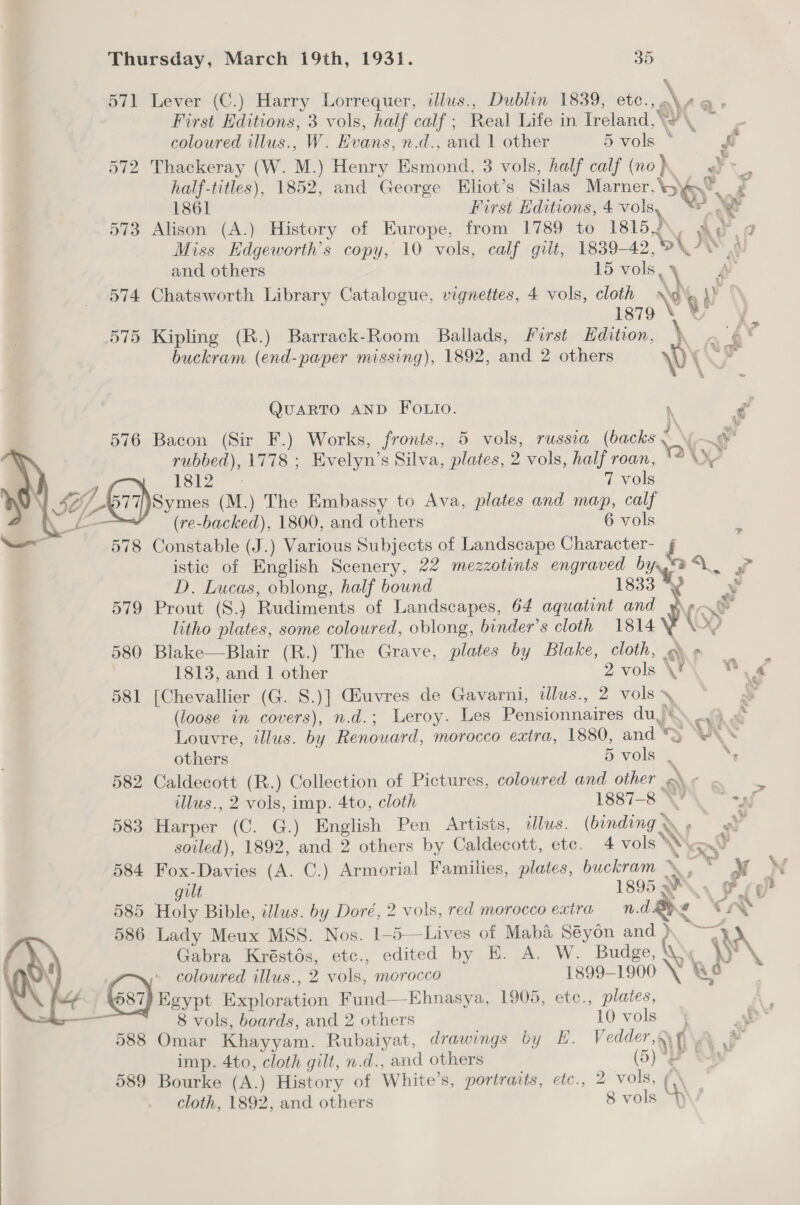 Thursday, March 19th, 1931. 35
571 Lever (C.) Harry Lorrequer, illus., Dublin 1839, etc.,
First Editions, 3 vols, half calf; Real Life in Ireland,
coloured illus., W. Evans, n.d., and 1 other 5 vols
572 Thackeray (W. M.) Henry Esmond, 3 vols, half calf (no
half-titles), 1852, and George Eliot's Silas Marner,
1861 First Editions, 4 vols,
573 Alison (A.) History of Europe, from 1789 to 1815,
Miss Edgeworth's copy, 10 vols, calf gilt, 1839–42,
and others 15 vols,
574 Chatsworth Library Catalogue, vignettes, 4 vols, cloth
1879
575 Kipling (R.) Barrack-Room Ballads, First Edition,
buckram (end-paper missing), 1892, and 2 others
QUARTO AND FOLIO.
576 Bacon (Sir F.) Works, fronts., 5 vols, russia (backs
rubbed), 1778; Evelyn's Silva, plates, 2 vols, half roan,
1812 7 vols
577 Symes (M.) The Embassy to Ava, plates and map, calf
(re-backed), 1800, and others 6 vols
578 Constable (J.) Various Subjects of Landscape Character-
istic of English Scenery, 22 mezzotints engraved by
D. Lucas, oblong, half bound 1833
579 Prout (S.) Rudiments of Landscapes, 64 aquatint and
litho plates, some coloured, oblong, binder's cloth 1814
580 Blake—Blair (R.) The Grave, plates by Blake, cloth,
1813, and 1 other 2 vols
581 [Chevallier (G. S.)] Œuvres de Gavarni, illus., 2 vols
(loose in covers), n.d.; Leroy. Les Pensionnaires du
Louvre, illus. by Renouard, morocco extra, 1880, and
others 5 vols
582 Caldecott (R.) Collection of Pictures, coloured and other
illus., 2 vols, imp. 4to, cloth 1887–8
583 Harper (C. G.) English Pen Artists, illus. (binding
soiled), 1892, and 2 others by Caldecott, etc. 4 vols
584 Fox-Davies (A. C.) Armorial Families, plates, buckram
gilt 1895
585 Holy Bible, illus. by Doré, 2 vols, red morocco extra n.d.
586 Lady Meux MSS. Nos. 1–5—Lives of Mabâ Sĕyôn and
Gabra Krĕstôs, etc., edited by E. A. W. Budge,
coloured illus., 2 vols, morocco 1899–1900
587 Egypt Exploration Fund—Ehnasya, 1905, etc., plates,
8 vols, boards, and 2 others 10 vols
588 Omar Khayyam. Rubaiyat, drawings by E. Vedder,
imp. 4to, cloth gilt, n.d., and others (5)
589 Bourke (A.) History of White's, portraits, etc., 2 vols,
cloth, 1892, and others 8 vols